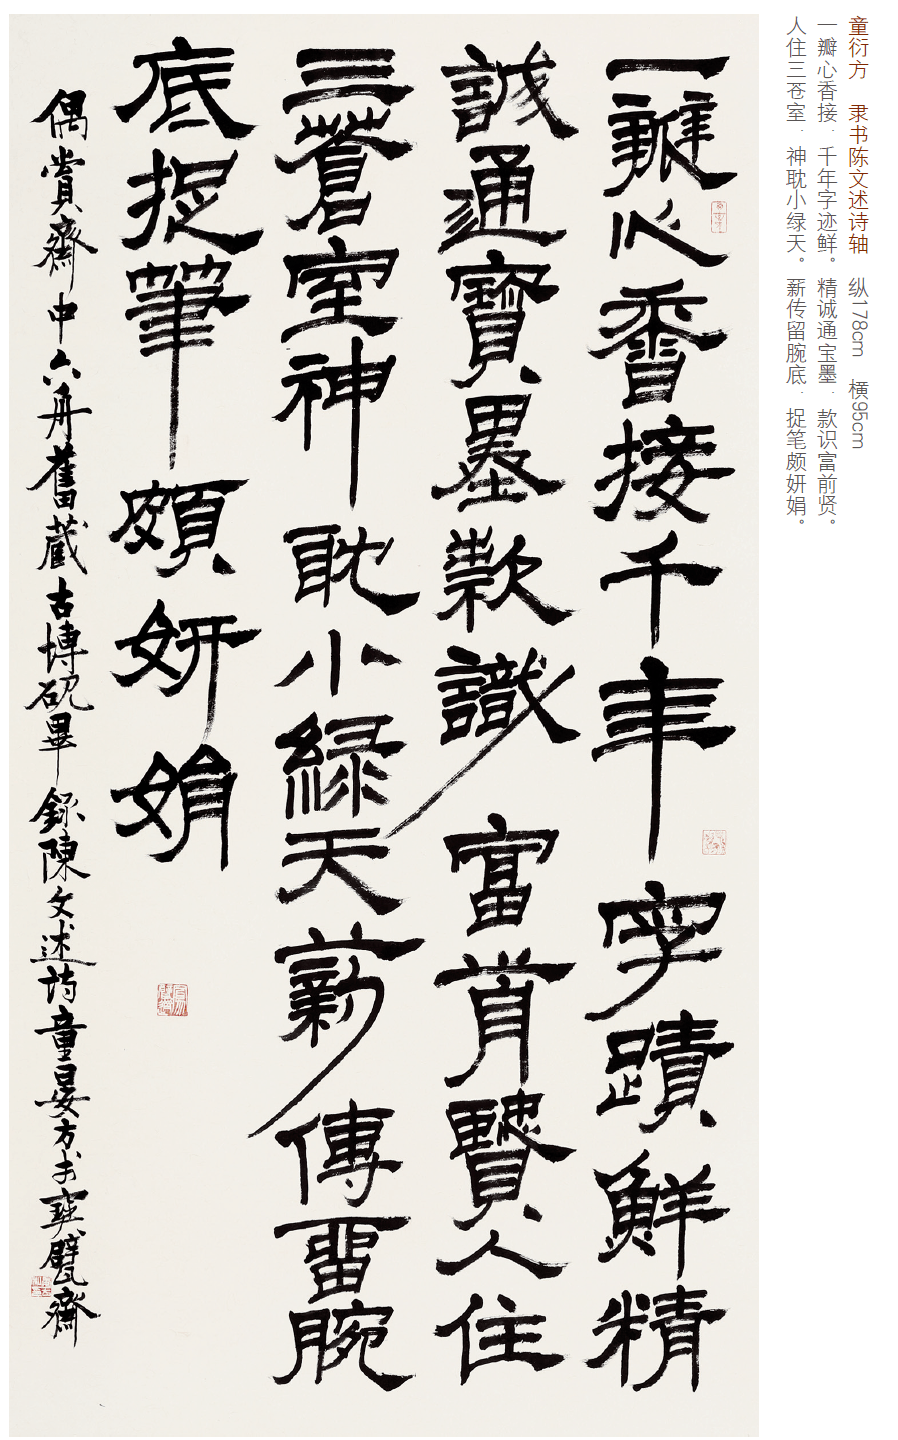 童衍方　隶书陈文述诗轴　纵178cm　横95cm
一瓣心香接，千年字迹鲜。精诚通宝墨，款识富前贤。
人住三苍室，神耽小绿天。薪传留腕底，捉笔颇妍娟。
一瓣心香接千年字蹟鮮精
誠通寶墨款識富歬賢人住
三蒼室神耽小綠天薪傳畱腕
底捉筆頗妍娟
偶賞齋中六舟舊藏古塼硯畢録陳文述詩童晏方書寶甓齋